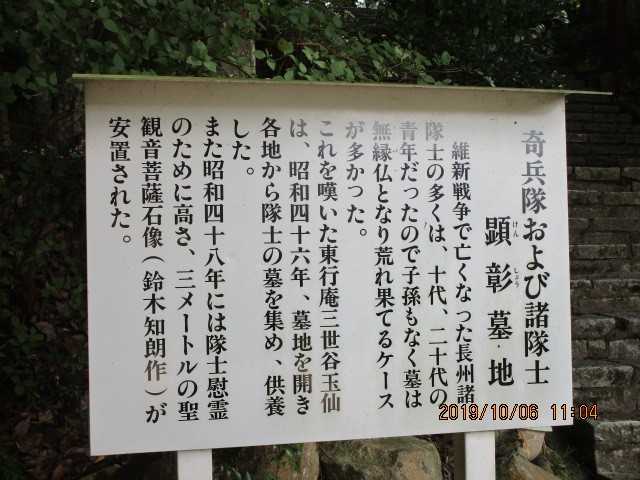 奇兵隊および諸隊士
顕彰墓地
けん
しょう
維新戦争で亡くなった長州諸
隊士の多くは、十代、二十代の
青年だったので子孫もなく墓は
無縁仏となり荒れ果てるケース
が多かった。
これを嘆いた東行庵三世谷玉仙
は、昭和四十六年、墓地を開き
各地から隊士の墓を集め、供養
した。
また昭和四十八年には隊士慰霊
のために高さ、三メートルの聖
観音菩薩石像(鈴木知朗作)が
安置された。
2019/10/06 11:04